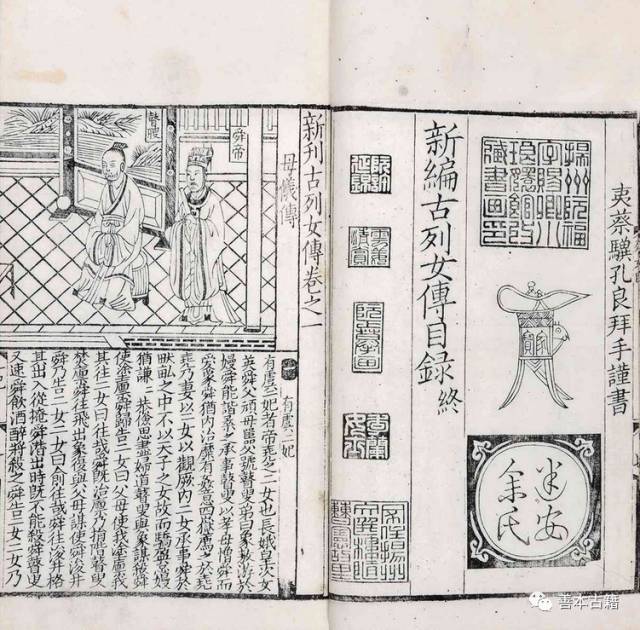 夷蔡驥孔良拜手謹書
揚州阮福
字賜卿小
藏書畫印
建安
余氏
新編古列女傳目錄終
新刊古列女傳卷之一
母儀傳
舜帝
瞽瞍
有虞二妃
有虞二妃者帝堯之二女也長娥皇次女
英舜父頑母嚚父號瞽叟弟曰象敖游於
嫚舜能諧柔之承事瞽叟以孝母憎舜而
愛象舜猶內治靡有姦意四嶽薦之於堯
堯乃妻以二女以觀厥內二女承事舜於
畎畝之中不以天子之女故而驕盈怠嫚
猶謙謙恭儉思盡婦道瞽叟與象謀殺舜
使塗廩舜歸告二女曰父母使我塗廩我
其往二女曰往哉舜既治廩乃捐階瞽叟
焚廩舜往飛出象復與父母謀使舜浚井
舜乃告二女二女曰俞往哉舜往浚井格
其出入從掩舜潛出時既不能殺舜瞽叟
又速舜飲酒醉將殺之舜告二女二女乃
善本古籍